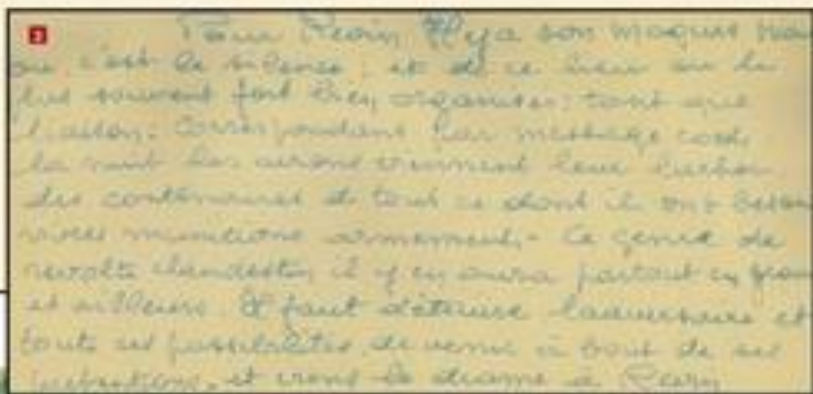 2
Pour Revin Il y a son maquis mais
ou c'est le silence; et de ce lieu ou le
plus souvent fort bien organiser: tant que
liaison: correspondans par message code
la nuit les avions viennent leur
des conteneures et tout ce dont il ont besoin
vivres munitions armement,- Ce genre de
revolte clandestin il y en aura partout en
et ailleurs. Il faut détruire l'adversaire et
toute ses possibilités, de venir à bout de ses
et vient le drame à